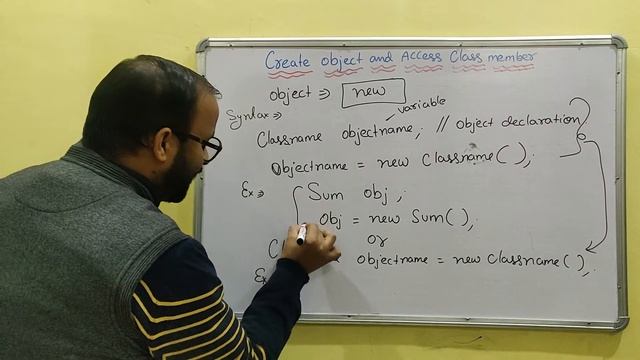 Create object and Access Class member
object ⇒ new
Syntax ⇒
variable
Classname objectname; // Object declaration
Objectname = new Classname();
Ex ⇒ Sum obj;
Obj = new Sum();
or
objectname = new Classname();
Ex